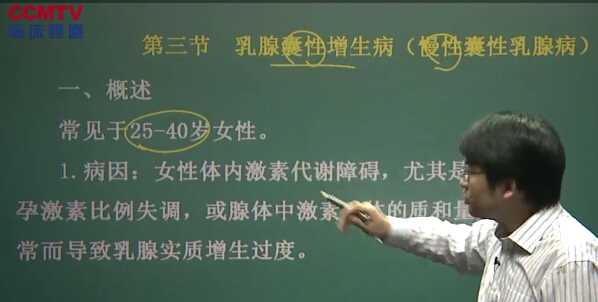 CCMTV
临床频道
第三节 乳腺囊性增生病（慢性囊性乳腺病）
一、概述
常见于25-40岁女性。
1.病因：女性体内激素代谢障碍，尤其是
孕激素比例失调，或腺体中激素 的质和量
常而导致乳腺实质增生过度。